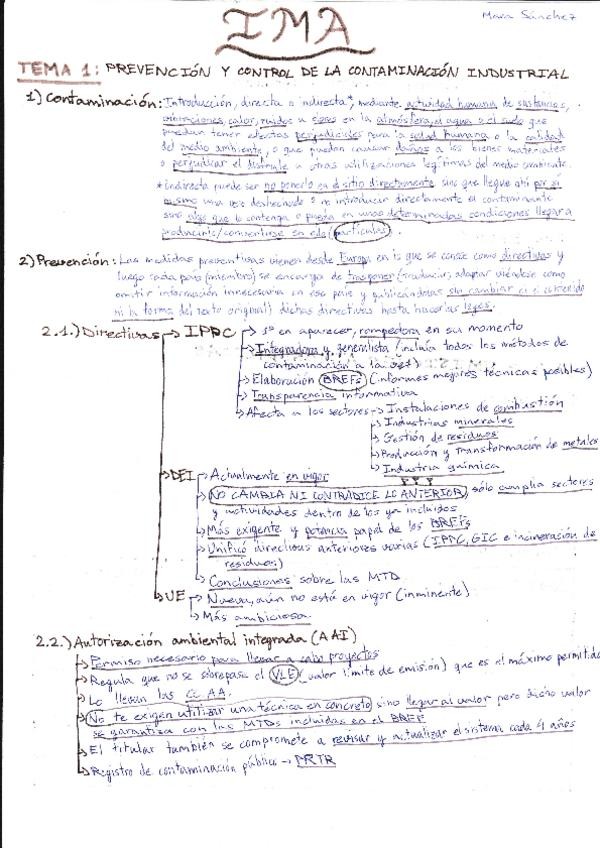 IMA
Mara Sánchez
TEMA 1: PREVENCIÓN Y CONTROL DE LA CONTAMINACIÓN INDUSTRIAL
1) Contaminación: Introducción, directa o indirecta*, mediante actividad humana de sustancias,
vibraciones, calor, ruidos a gases en la atmósfera, el agua o el suelo que
puedan tener efectos perjudiciales para la salud humana o la calidad
del medio ambiente, o que puedan causar daños a los bienes materiales
o perjudicar el disfrute u otras utilizaciones legítimas del medio ambiente.
*Indirecta puede ser no ponerlo en el sitio directamente sino que llegue ahí por sí
mismo una vez deshechado o no introducir directamente el contaminante
sino algo que lo contenga o pueda en unas determinadas condiciones llegar a
producirlo/convertirse en ello (partículas).
2) Prevención: Las medidas preventivas vienen desde Europa en lo que se conoce como directivas y
luego cada país (miembro) se encarga de trasponer (traducir, adaptar viéndose como
omitir información innecesaria en ese país y publicándolas sin cambiar ni el contenido
ni la forma del texto original) dichas directivas hasta hacerlas leyes.
2.1.) Directivas → IPPC → 1º en aparecer, rompedora en su momento
→ Integradora y generalista (incluía todos los métodos de
contaminación a la vez)
→ Elaboración BREFs (informes mejores técnicas posibles)
→ Transparencia informativa
→ Afecta a los sectores → Instalaciones de combustión
→ Industrias minerales
→ Gestión de residuos
→ Producción y transformación de metales
→ Industria química
→ DEI → Actualmente en vigor
→ NO CAMBIA NI CONTRADICE LO ANTERIOR, sólo amplia sectores
y actividades dentro de los ya incluidos
→ Más exigente y potencia papel de los BREFs
→ Unificó directivas anteriores varias (IPPC, GIC e incineración de
residuos)
→ Conclusiones sobre las MTD
→ UE → Nueva, aún no está en vigor (inminente)
→ Más ambiciosa
2.2.) Autorización ambiental integrada (AAI)
→ Permiso necesario para llevar a cabo proyectos
→ Regula que no se sobrepase el VLE (valor límite de emisión) que es el máximo permitido
→ Lo llevan las CC.AA.
→ No te exigen utilizar una técnica en concreto sino llegar al valor pero dicho valor
se garantiza con las MTDs incluidas en el BREF
→ El titular también se compromete a revisar y actualizar el sistema cada 4 años
→ Registro de contaminación público → PRTR